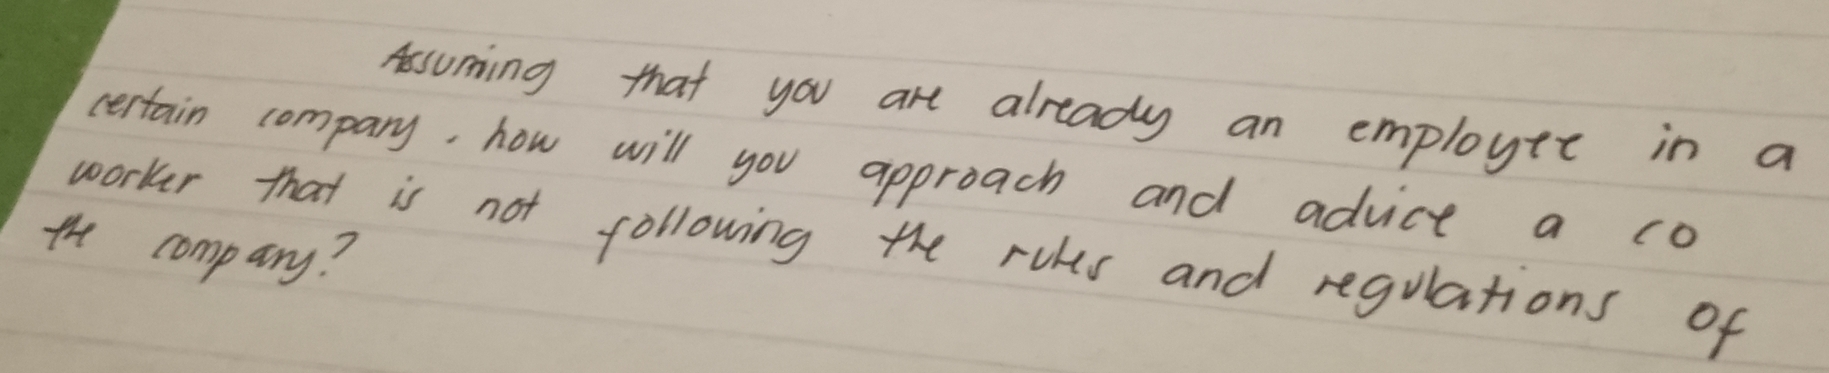 Assuming that you are already an employee in a
certain company. how will you approach and advice a co
worker that is not following the rules and regulations of
the company?